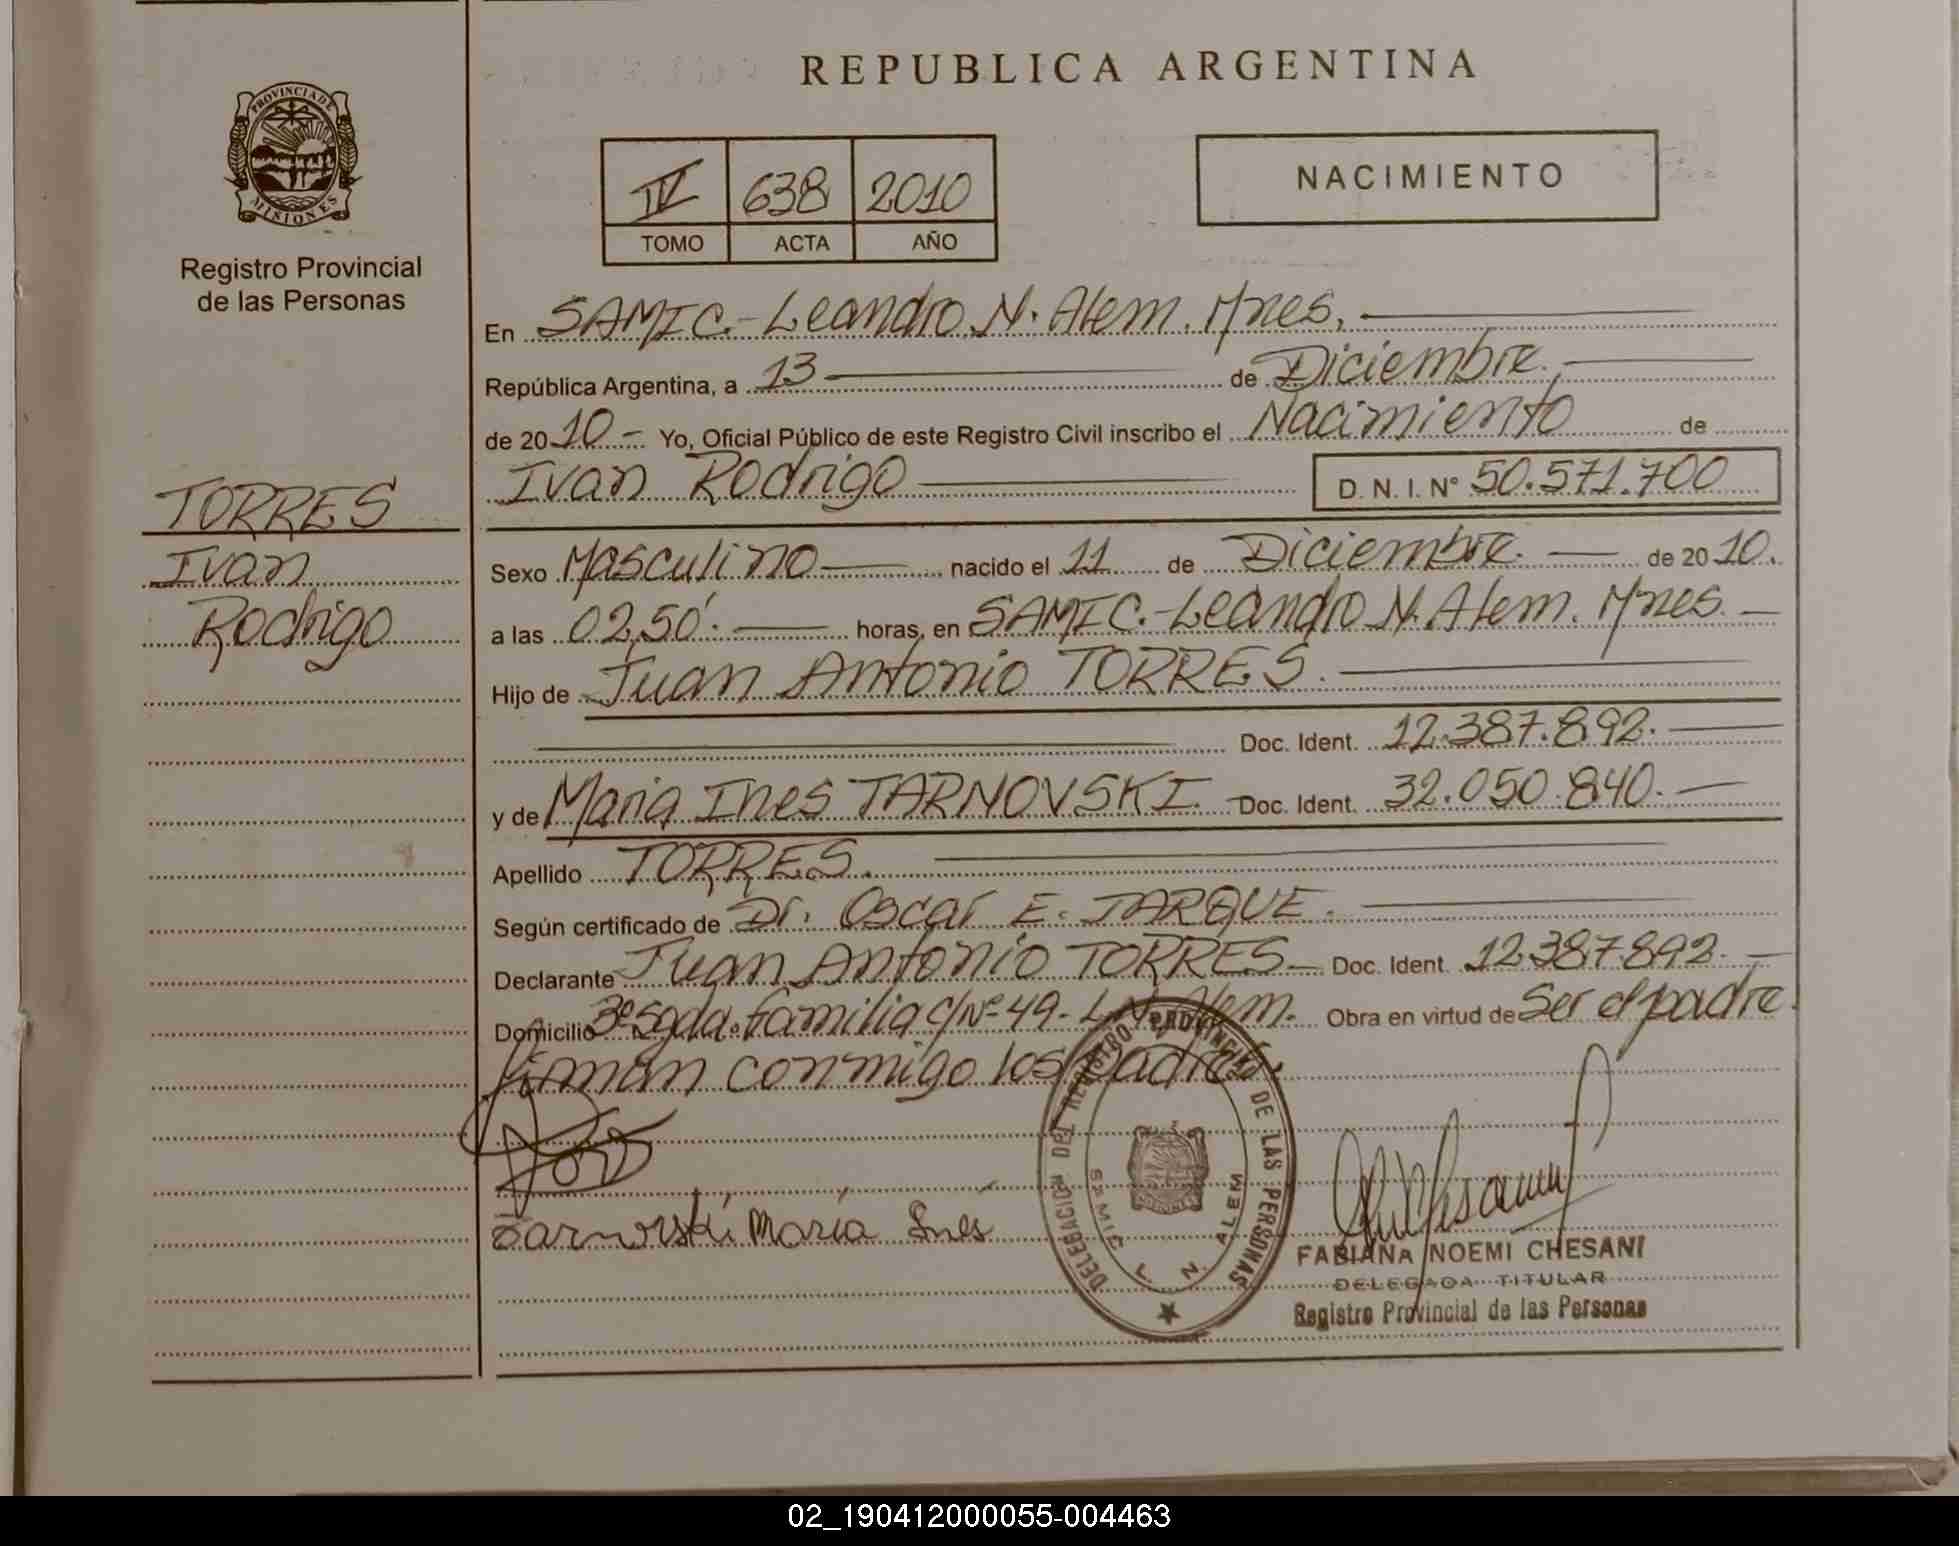 REPUBLICA ARGENTINA
PROVINCIA DE
MISIONES
Registro Provincial
de las Personas
IV 638 2010
TOMO ACTA AÑO
NACIMIENTO
TORRES
Ivan
Rodrigo
En SAMIC.-Leandro N. Alem. Mnes.
República Argentina, a 13 de Diciembre.
de 2010- Yo, Oficial Público de este Registro Civil inscribo el Nacimiento de
Ivan Rodrigo D. N. I. Nº 50.571.700
Sexo Masculino nacido el 11 de Diciembre. de 2010.
a las 02,50'. horas, en SAMIC.-Leandro N. Alem. Mnes.
Hijo de Juan Antonio TORRES.
Doc. Ident. 12.387.892.
y de Maria Ines TARNOVSKI. Doc. Ident. 32.050.840.
Apellido TORRES.
Según certificado de Dr. Oscar E. JARQUE.
Declarante Juan Antonio TORRES Doc. Ident. 12.387.892.
Domicilio 3º Sgda. Familia c/Nº 49- L.N. Alem. Obra en virtud de Ser el padre.
Firman conmigo los padres.
Tarnovski Maria Ines
DELEGACION DEL REGISTRO PROVINCIAL DE LAS PERSONAS
SAMIC L. N. ALEM
FABIANA NOEMI CHESANI
DELEGADA TITULAR
Registro Provincial de las Personas
02_190412000055-004463